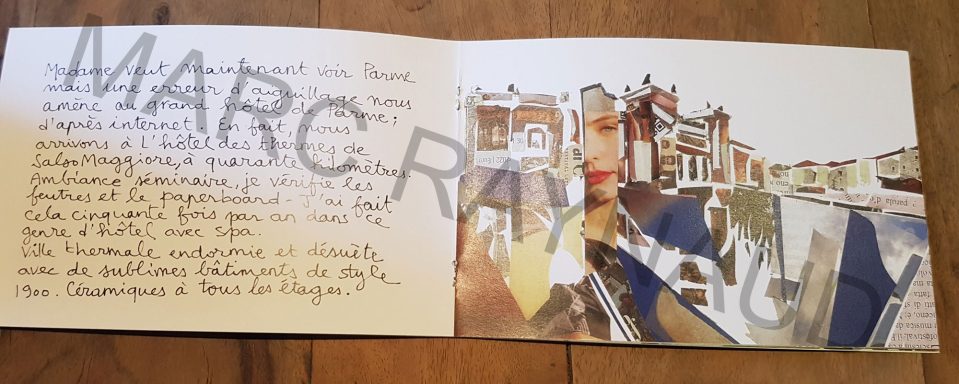 Madame veut maintenant voir Parme
mais une erreur d'aiguillage nous
amène au grand hôtel de Parme ;
d'après internet. En fait, nous
arrivons à L'hôtel des thermes de
SalsoMaggiore, à quarante kilomètres.
Ambiance séminaire, je vérifie les
feutres et le paperboard - J'ai fait
cela cinquante fois par an dans ce
genre d'hôtel avec spa.
Ville thermale endormie et désuète
avec de sublimes bâtiments de style
1900. Céramiques à tous les étages.
MARC RAYNAUD